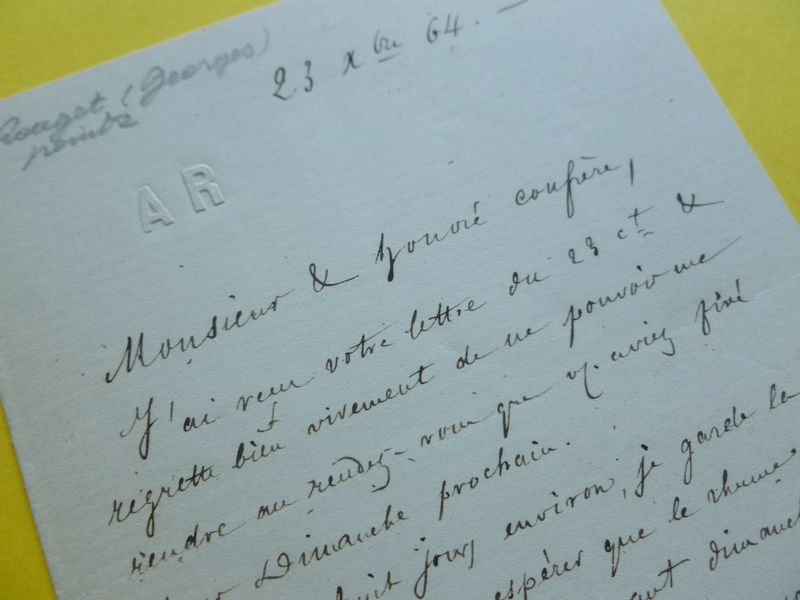 Rouget (Georges)
peintre
23 Xbre 64. —
AR
Monsieur & honoré confrère,
J'ai reçu votre lettre du 23 ct &
regrette bien vivement de ne pouvoir me
rendre au rendez-vous que v. aviez fixé
Dimanche prochain.
huit jours environ, je garde la
espérer que le rhume
dimanche